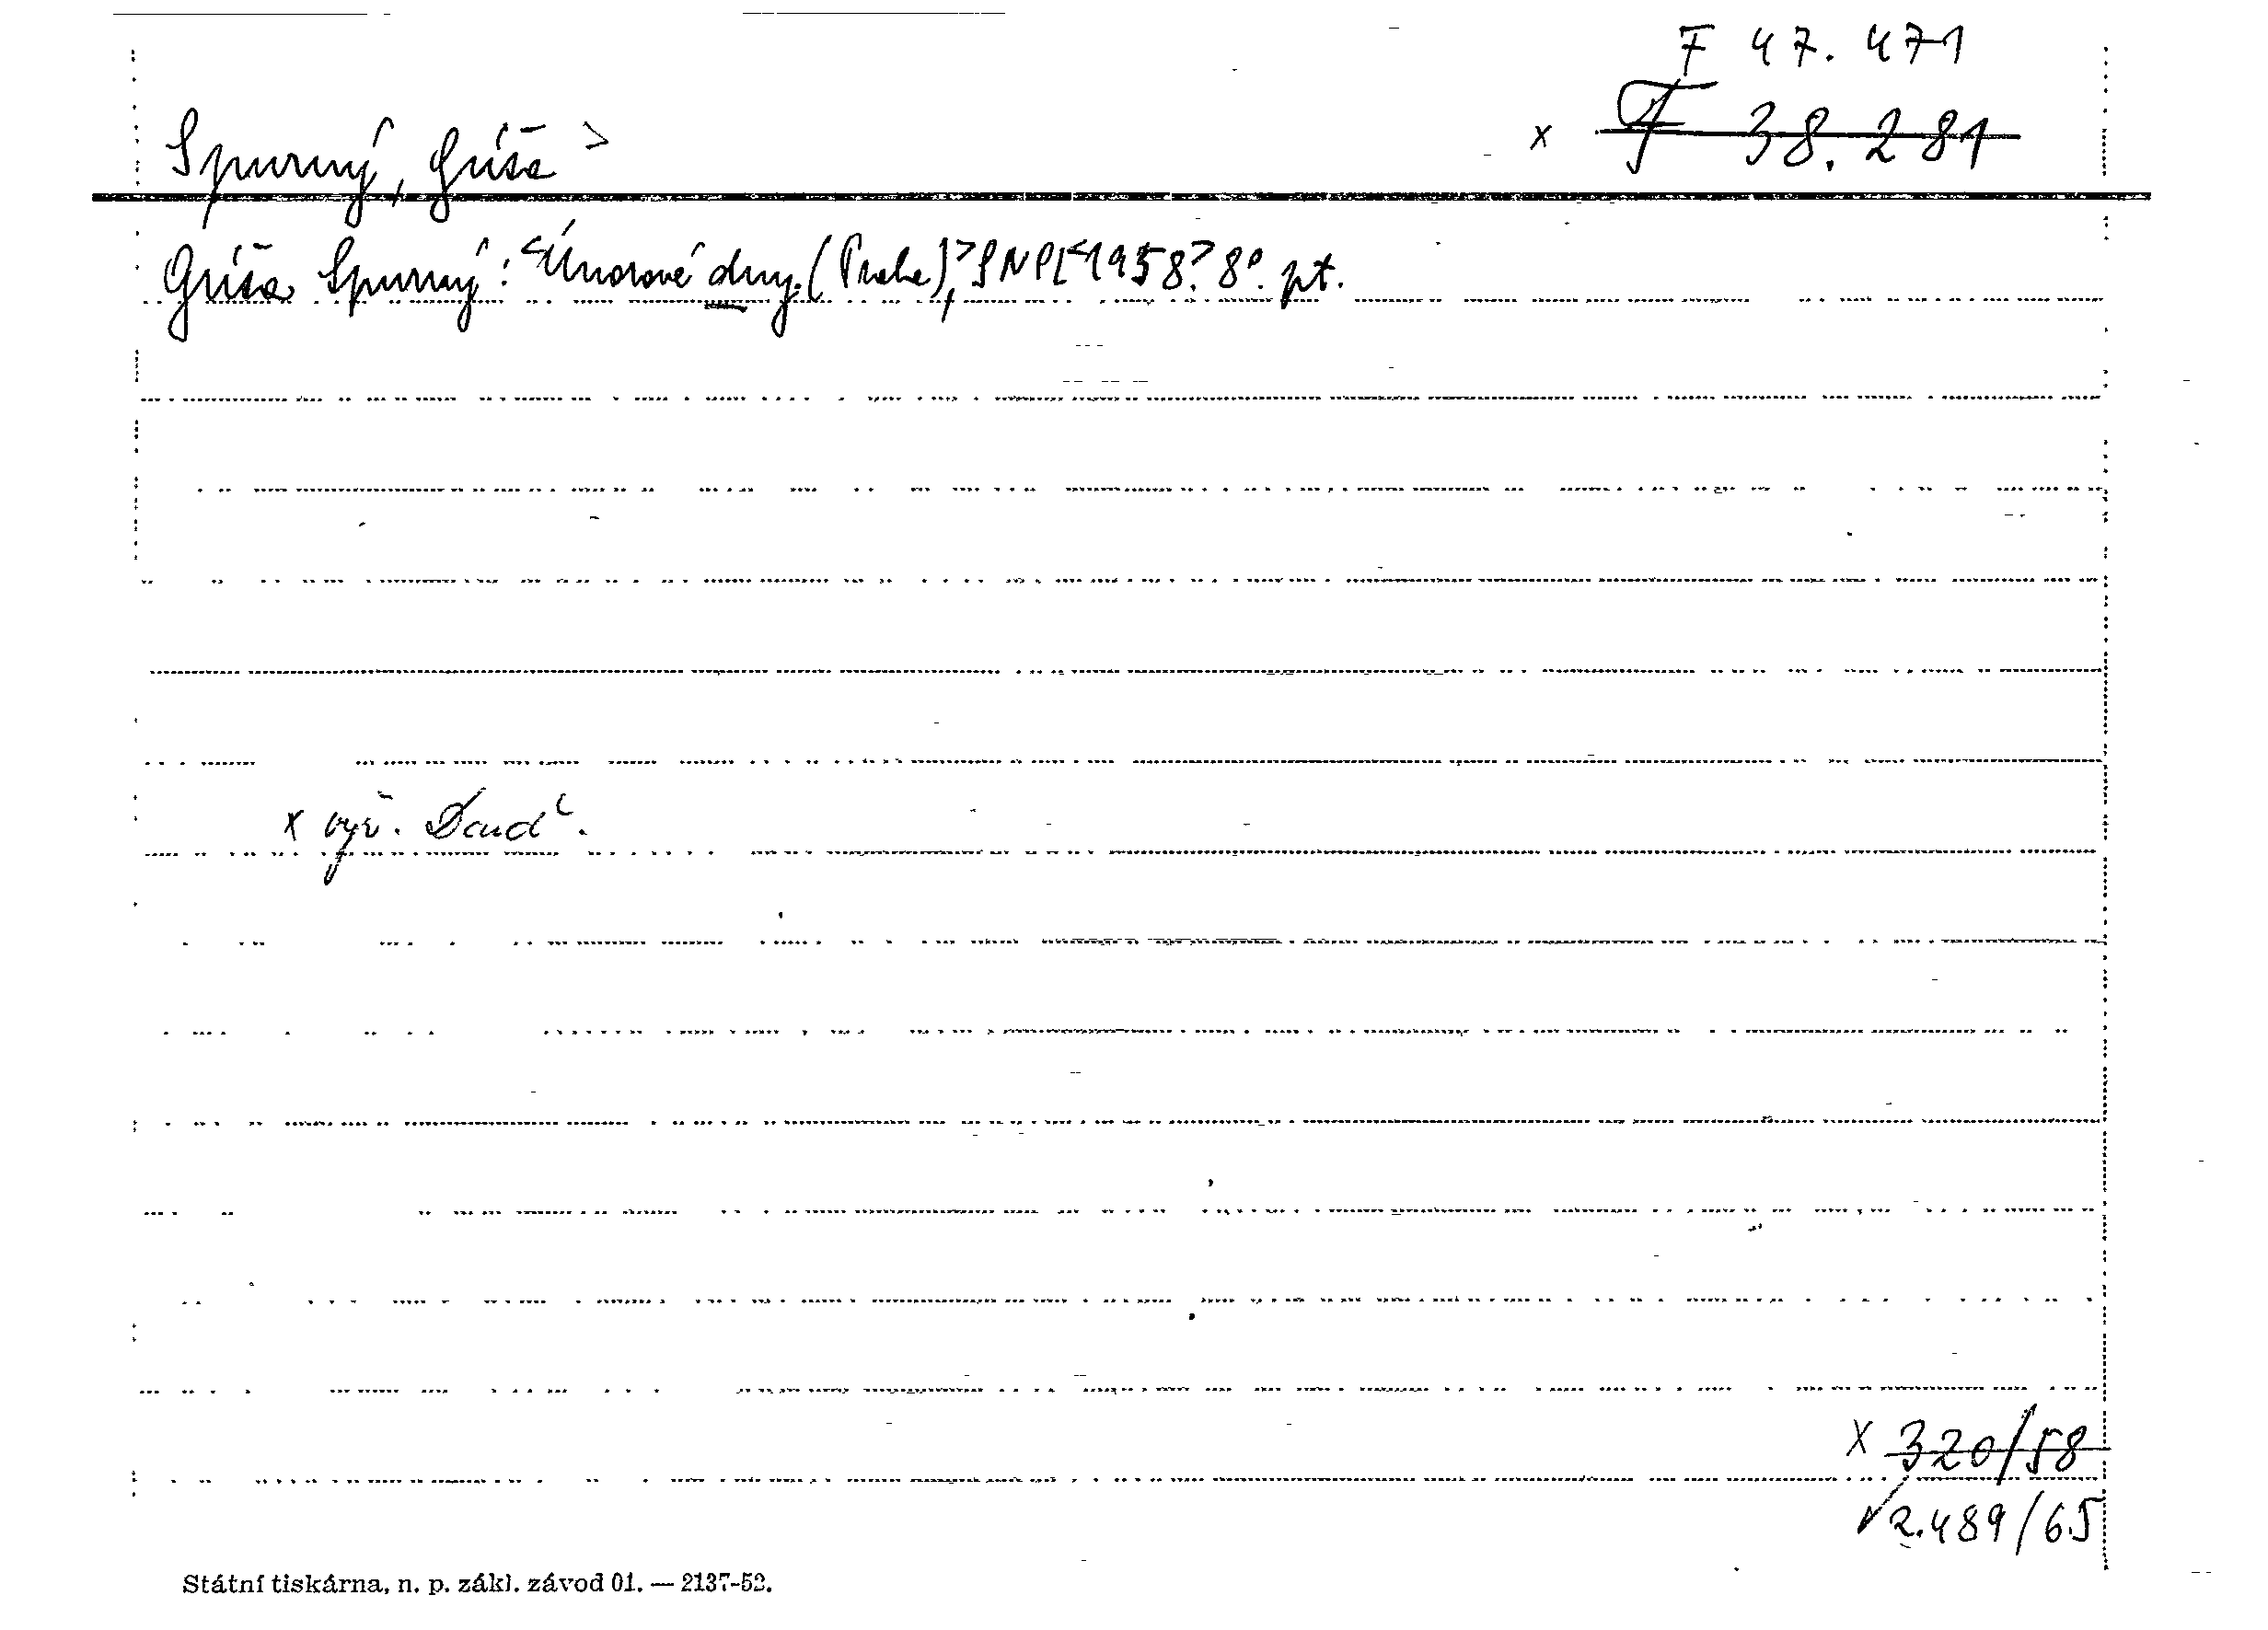 F 47.471
x F 38.281
Spurný, Gríša >
Gríša Spurný: <Únorové dny. (Praha),> SNPL <1958>. 8°. pt.
x vyř.
x 320/58
✓2.489/65
Státní tiskárna, n. p. zákl. závod 01. — 2137-52.